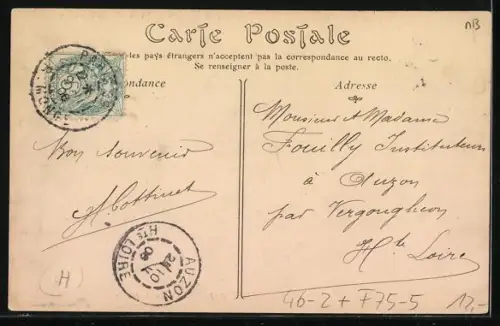 Carte Postale
les pays étrangers n'acceptent pas la correspondance au recto.
Se renseigner à la poste.
ondance
Adresse
Bon souvenir
H. Cottinet
Monsieur et Madame
Fouilly Instituteurs
à Auzon
par Vergongheon
Hte Loire
AUZON
Hte LOIRE
H
nB
46-2 + F75-5
12,-